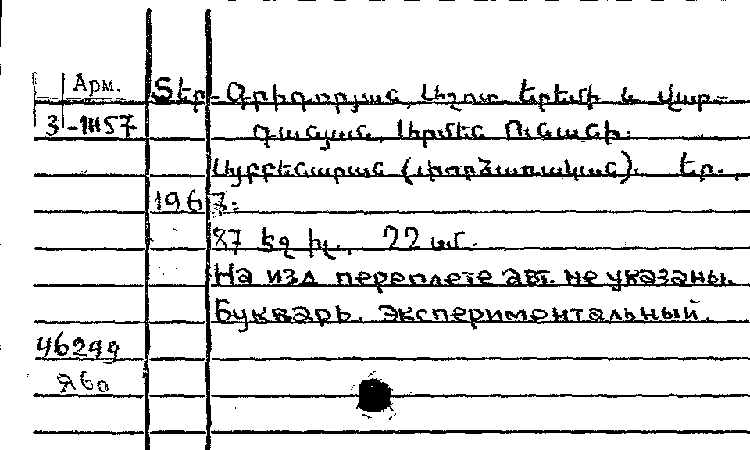 Арм. Տեր-Գրիգորյան, Աշոտ Երեմի և Վար-
3-1157 դանյան, Արմեն Ունանի.
Այբբենարան (փորձառական). Եր.,
1967:
87 էջ իլ., 22 սմ.
На изд. переплете авт. не указаны.
Букварь. экспериментальный.
46299